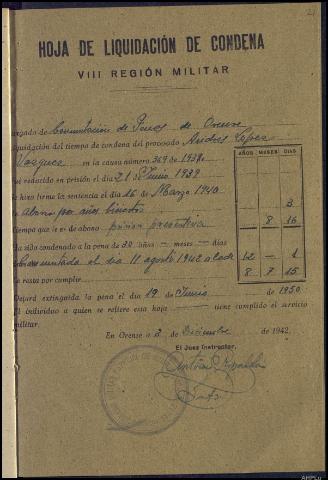 HOJA DE LIQUIDACIÓN DE CONDENA
VIII REGIÓN MILITAR
Juzgado de Conmutación de Penas de Orense
Liquidación del tiempo de condena del procesado Andres Lopez
Vazquez en la causa número 369 de 1938.
AÑOS MESES DÍAS
Fué reducido en prisión el día 21 de Junio 1939
Se hizo firme la sentencia el día 16 de Marzo 1940
De abono por años bisiestos 3
Tiempo que le es de abono prision preventiva 8 16
Ha sido condenado a la pena de 30 años — meses — días
Conmutada el día 11 agosto 1942 a la de 12 — 1
Le resta por cumplir 8 7 15
Dejará extinguida la pena el día 19 de Junio de 1950
El individuo a quien se refiere esta hoja tiene cumplido el servicio
militar.
En Orense a 2 de Diciembre de 1942.
El Juez Instructor,
AHPLu